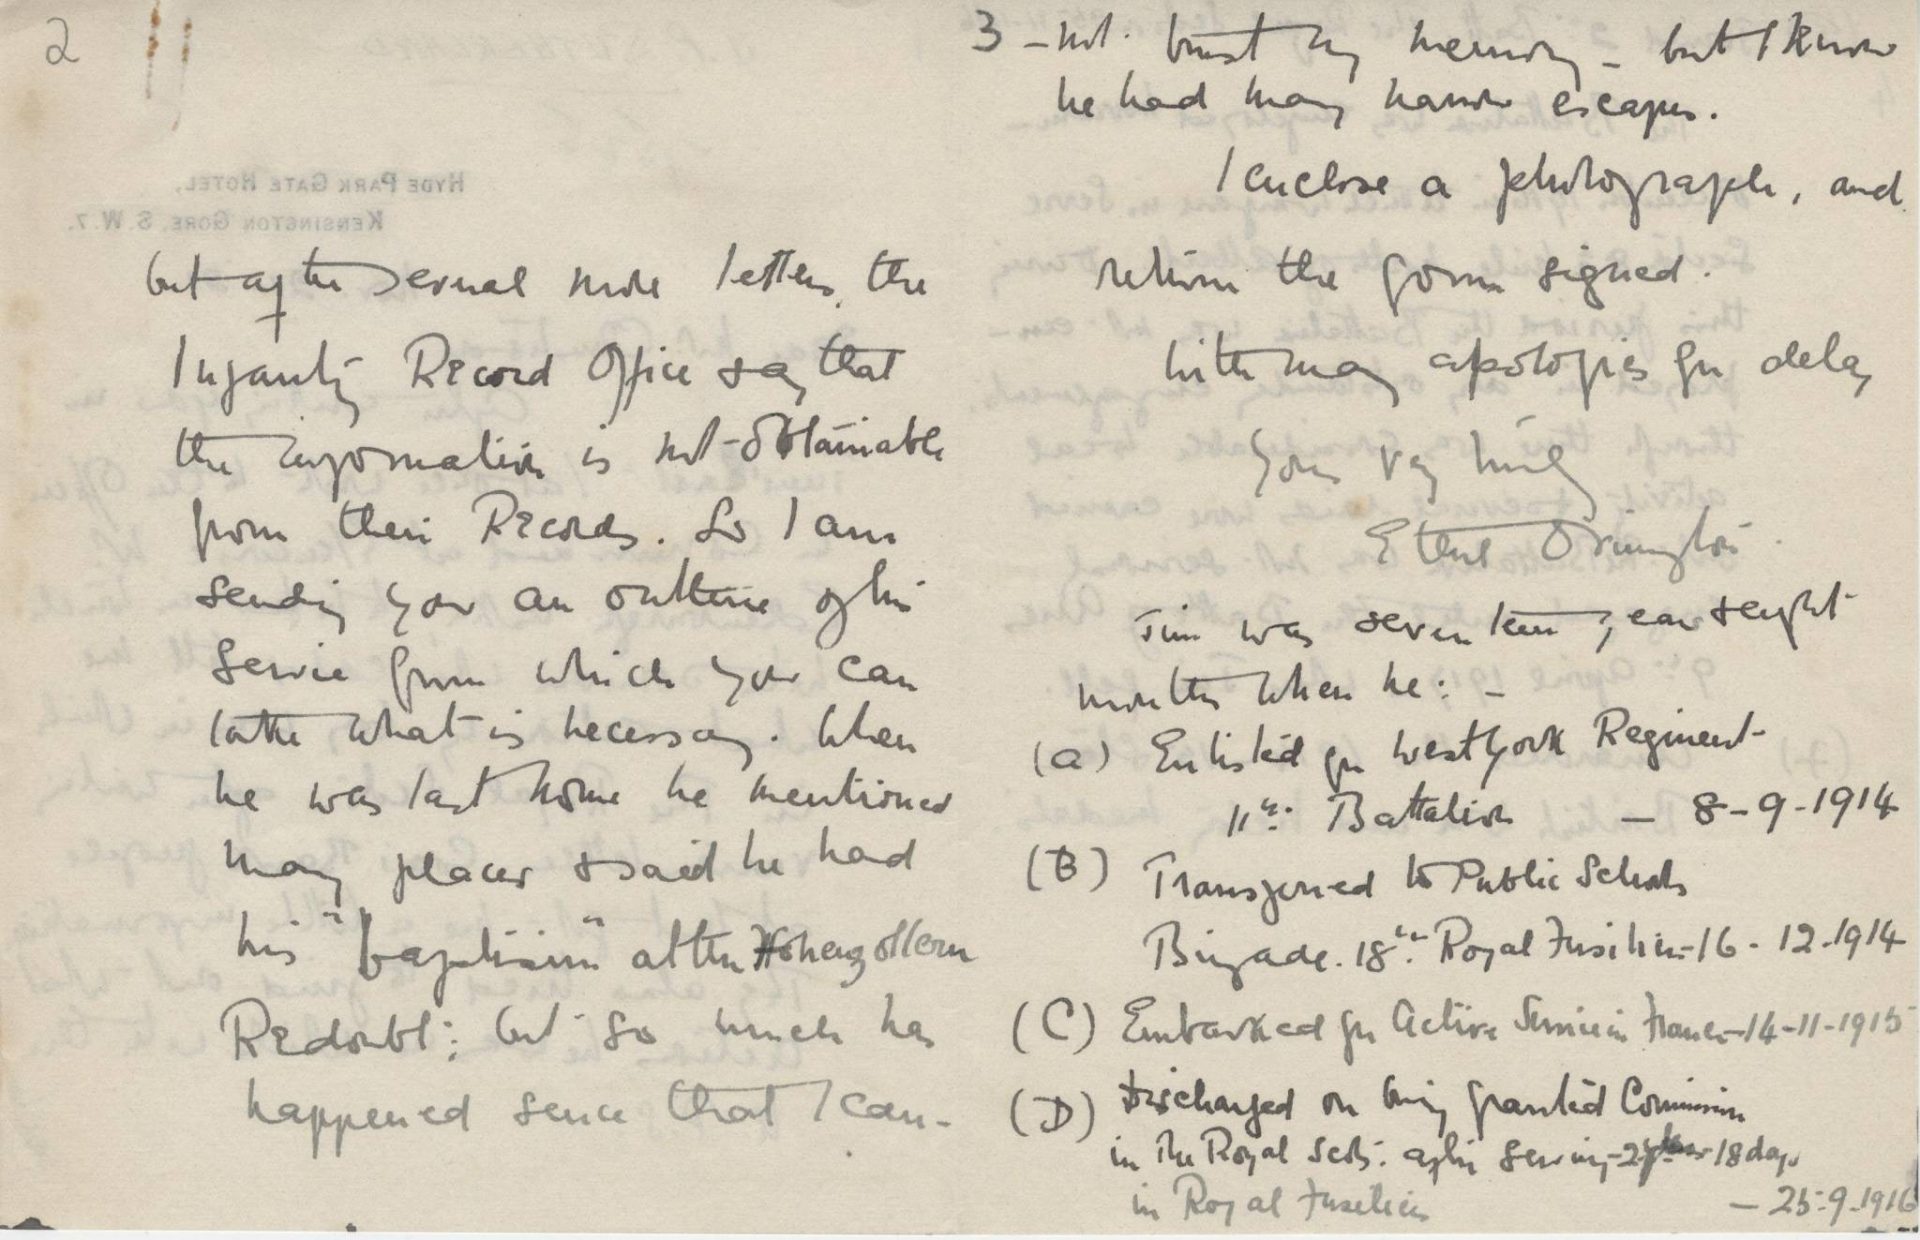 2
but after several more letters, the
Infantry Record Office say that
the information is not obtainable
from their Records. So I am
sending you an outline of his
Service from which you can
take what is necessary. When
he was last home he mentioned
many places & said he had
his "baptism" at the Hohenzollern
Redoubt; but so much has
happened sence that I can-
3 - not trust my memory - but I know
he had many narrow escapes.
I enclose a photograph, and
return the form signed.
With many apologies for delay
Yours very truly
Ethel
Jim was seventeen years eight
months when he: -
(a) Enlisted for West York Regiment
11th Battalion - 8-9-1914
(B) Transferred to Public Schools
Brigade. 18th Royal Fusiliers - 16-12-1914
(C) Embarked for Active Service in France - 14-11-1915
(D) Discharged on being granted Commission
in The Royal Scots. after serving 2 18 days
in Royal Fusiliers - 25-9-1916
HYDE PARK GATE HOTEL,
KENSINGTON GORE, S.W.7.